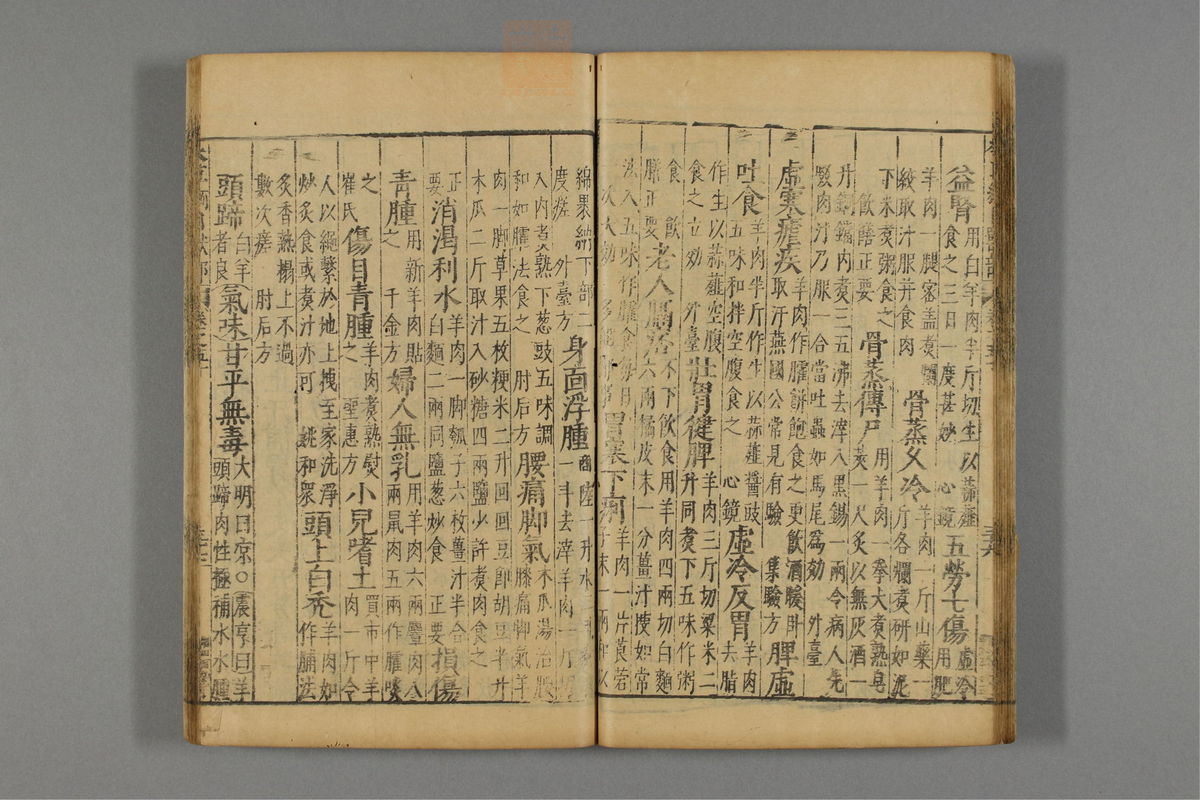 益腎用白羊肉半斤切生以蒜薤食之三日一度甚妙 心鏡五勞七傷虛冷用肥
羊肉一腿密蓋煮爛絞取汁服并食肉骨蒸久冷羊肉一斤山藥一斤各爛煮研如泥
下米煮粥食之飲膳正要骨蒸傳尸用羊肉一拳大煮熟皂莢一尺炙以無灰酒一
升銅鐺內煮三五沸去滓入黑錫一兩令病人先啜肉汁乃服一合當吐蟲如馬尾爲効 外臺
虛寒瘧疾羊肉作臛餅飽食之更飲酒暖臥取汗燕國公常見有驗 集驗方脾虛
吐食羊肉半斤作生以蒜薤醬豉五味和拌空腹食之 心鏡虛冷反胃羊肉去脂
作生以蒜薤空腹食之立効 外臺壯胃健脾羊肉三斤切粱米二升同煮下五味作粥
食 飲膳正要老人膈痞不下飲食用羊肉四兩切白麵六兩橘皮末一分薑汁搜如常
法入五味作臛食每日一次大効 多能鄙事胃寒下痢羊肉一片莨菪子末一兩和以
綿裹納下部二度瘥 外臺方身面浮腫商陸一升水二斗煮一斗去滓羊肉一斤切
入內煮熟下葱豉五味調和如臛法食之 肘后方腰痛脚氣木瓜湯治腰膝痛脚氣羊
肉一脚草果五枚粳米二升回回豆即胡豆半升木瓜二斤取汁入砂糖四兩鹽少許煮肉食之
正要消渴利水羊肉一脚瓠子六枚薑汁半合白麵二兩同鹽葱炒食 正要損傷
青腫用新羊肉貼之 千金方婦人無乳用羊肉六兩麞肉八兩鼠肉五兩作臛啖
之 崔氏傷目青腫羊肉煮熟熨之 聖惠方小兒嗜土買市中羊肉一斤令
人以繩繫於地上拽至家洗淨炒炙食或煮汁亦可 姚和衆頭上白禿羊肉如作脯法
炙香熱搨上不過數次瘥 肘后方
頭蹄白羊者良氣味甘平無毒大明曰凉○震亨曰羊頭蹄肉性極補水水腫